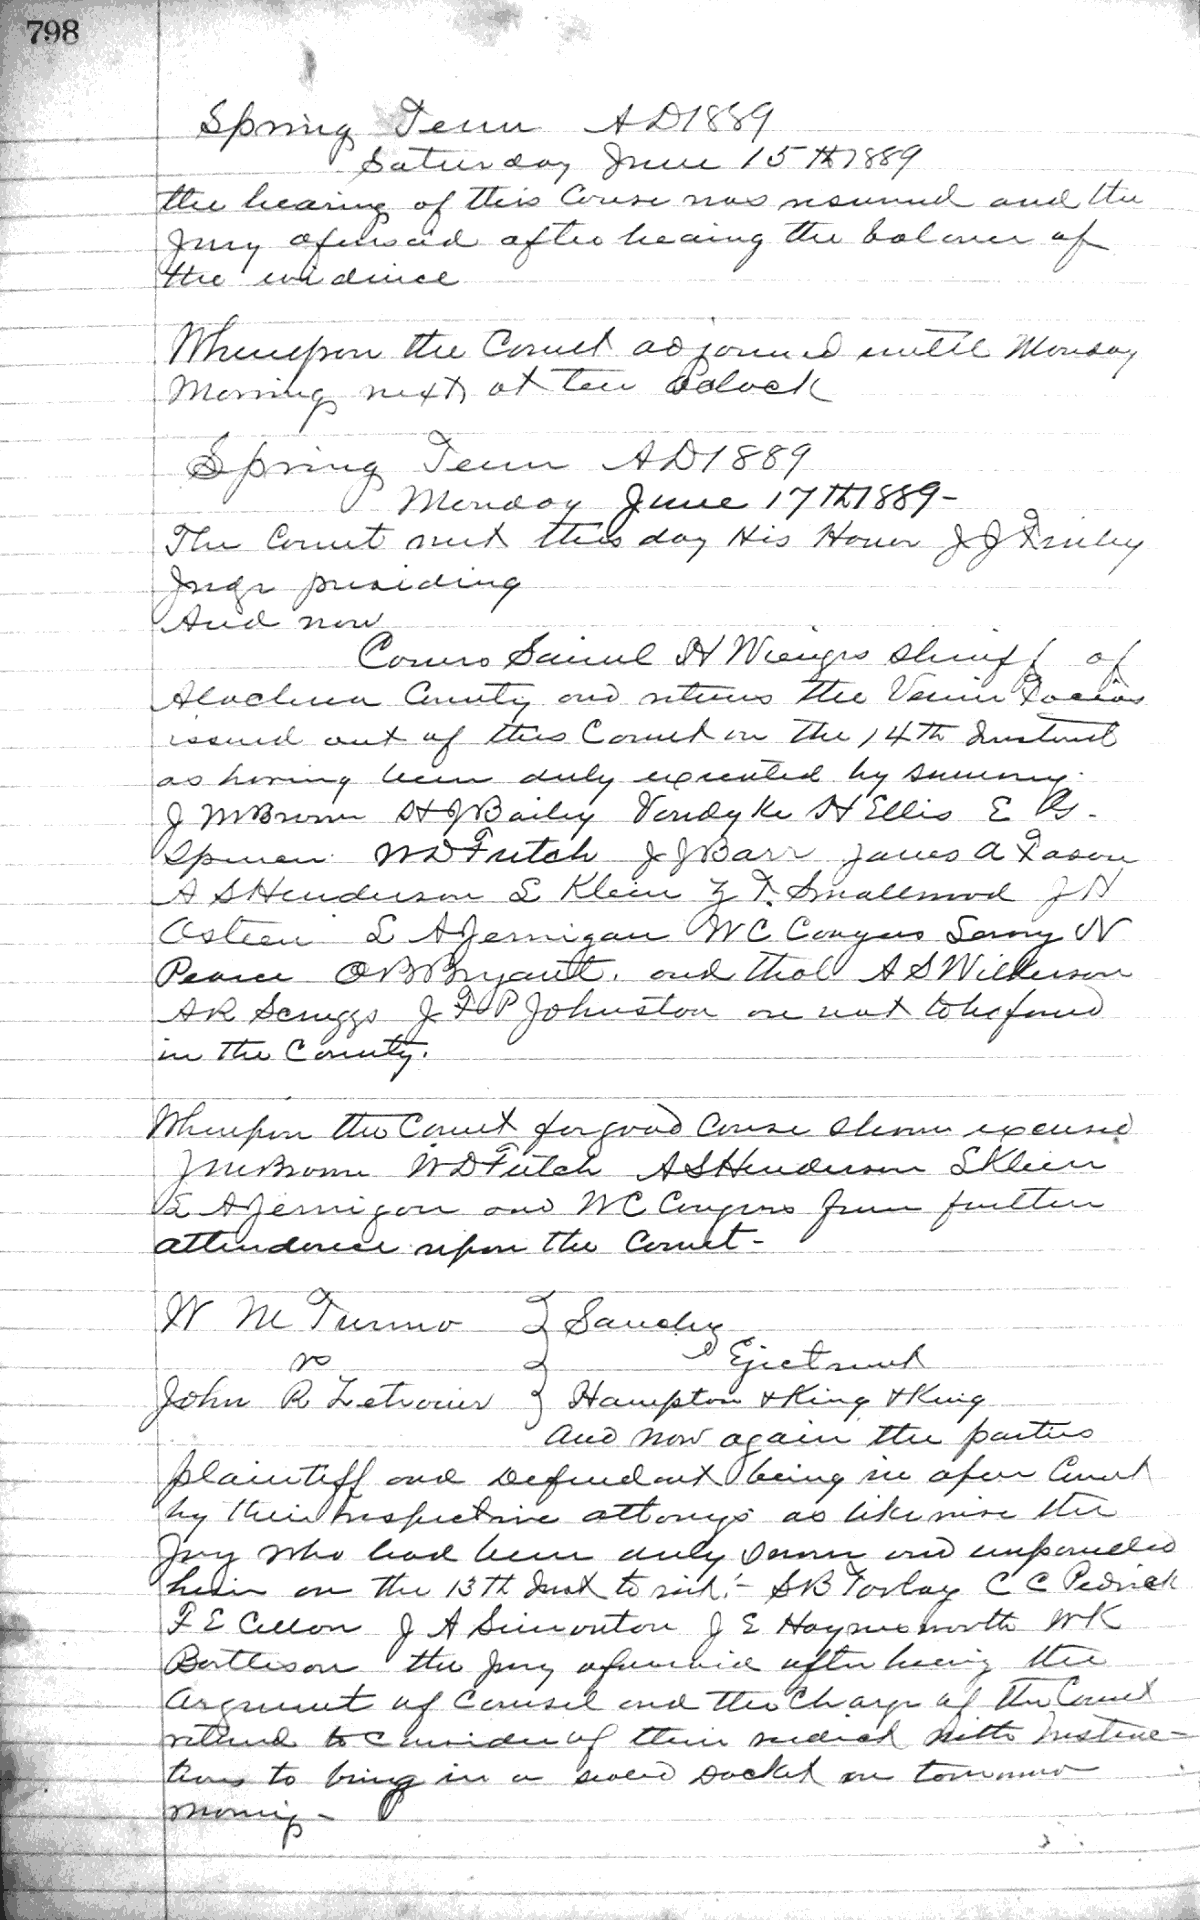 798
Spring Term AD 1889
Saturday June 15th 1889
the hearing of this Cause was resumed and the
Jury aforesaid after hearing the balance of
the evidence
Whereupon the Court adjourned until Monday
Morning next, at ten Oclock
Spring Term AD 1889
Monday June 17th 1889-
The Court met this day His Honor J J Finley
Judge presiding
And now
Comes Samuel H Wienges Sheriff of
Alachua County and returns the Venire Facias
issued out of this Court on the 14th Instant
as having been duly executed by summong
J M Brown H J Bailey Vandyke H Ellis E G.
Spencer W D Futch J J Barr James A Fason
A S Henderson L Klein Z T. Smallwood J H
Osteen L A Jernigan W C Congers N
Pearce O B Bryant. and that A S Wilkerson
A R Scruggs J F P Johnston are not to be found
in the County.
Whereupon the Court for good Cause shown excused
J M Brown W D Futch A S Henderson L Klein
L A Jernigan and W C Congers from further
attendance upon the Court-
W M Turner } Sanchez
vs } Ejectment
John R Zetrouer } Hampton & King & King
And now again the parties
plaintiff and Defendant being in open Court
by their respective attorneys as likewise the
Jury who had been duly sworn and empaneled
herein on the 13th Inst to wit:- S B C C Pedrick
F E Cellon J A Simonton J E Haynesworth W K
the Jury aforesaid after hearing the
Argument of Counsel and the Charge of the Court
retired to Consider of their verdict with Instruc-
tions to bring in a sealed Docket on tomorrow
morning-